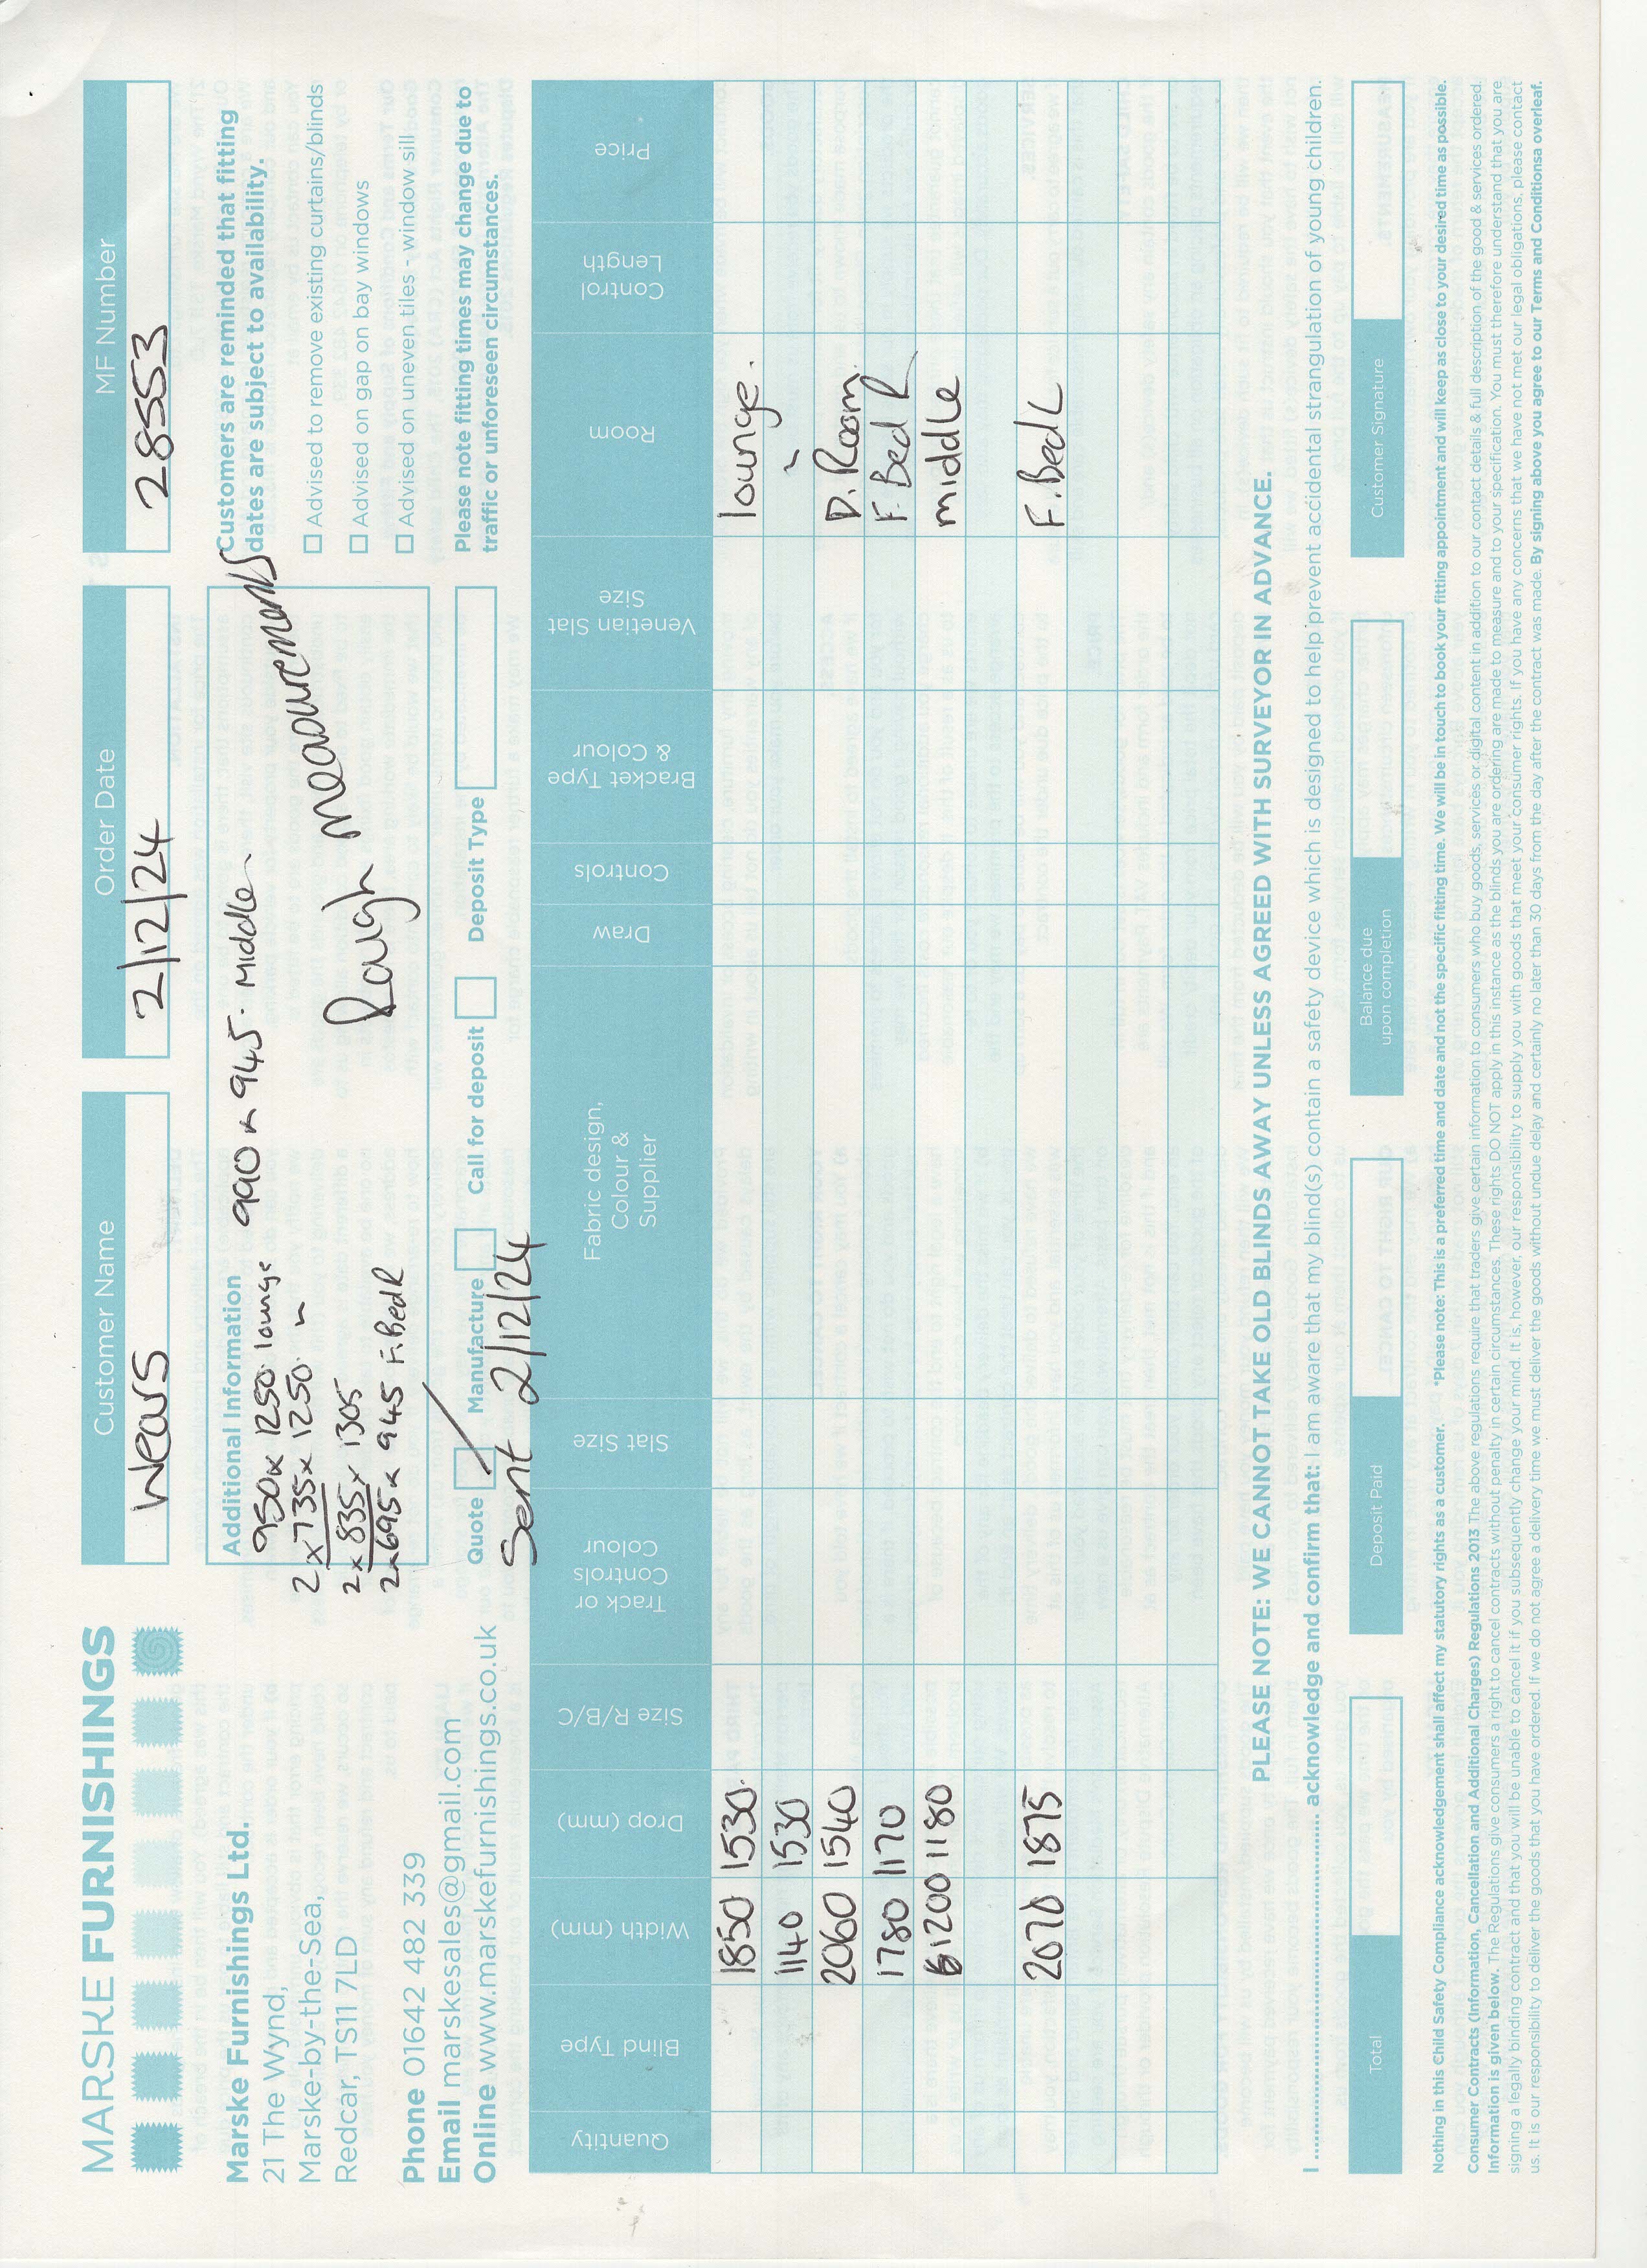 MARSKE FURNISHINGS
Marske Furnishings Ltd.
21 The Wynd,
Marske-by-the-Sea,
Redcar, TS11 7LD
Phone 01642 482 339
Email marskesales@gmail.com
Online www.marskefurnishings.co.uk
Customer Name
Wears
Order Date
2/12/24
MF Number
28553
Additional Information
950 x 1250. lounge
2 x 735 x 1250. "
2 x 835 x 1305
2 x 695 x 945 F.Bed R
990 x 945. Middle
Rough measurements
Customers are reminded that fitting
dates are subject to availability.
Advised to remove existing curtains/blinds
Advised on gap on bay windows
Advised on uneven tiles - window sill
Please note fitting times may change due to
traffic or unforeseen circumstances.
Quote Manufacture Call for deposit Deposit Type
Sent 2/12/24
Quantity Blind Type Width (mm) Drop (mm) Size R/B/C Track or Controls Colour Slat Size Fabric design, Colour & Supplier Draw Controls Bracket Type & Colour Venetian Slat Size Room Control Length Price
1850 1530. lounge.
1140 1530 "
2060 1540 D. Room.
1780 1170 F. Bed R
1200 1180 middle
2070 1875 F. Bed L
PLEASE NOTE: WE CANNOT TAKE OLD BLINDS AWAY UNLESS AGREED WITH SURVEYOR IN ADVANCE.
I .............................. acknowledge and confirm that: I am aware that my blind(s) contain a safety device which is designed to help prevent accidental strangulation of young children.
Total Deposit Paid Balance due upon completion Customer Signature
Nothing in this Child Safety Compliance acknowledgement shall affect my statutory rights as a customer. *Please note: This is a preferred time and date and not the specific fitting time. We will be in touch to book your fitting appointment and will keep as close to your desired time as possible.
Consumer Contracts (Information, Cancellation and Additional Charges) Regulations 2013 The above regulations require that traders give certain information to consumers who buy goods, services or digital content in addition to our contact details & full description of the good & services ordered.
Information is given below. The Regulations give consumers a right to cancel contracts without penalty in certain circumstances. These rights DO NOT apply in this instance as the blinds you are ordering are made to measure and to your specification. You must therefore understand that you are
signing a legally binding contract and that you will be unable to cancel it if you subsequently change your mind. It is, however, our responsibility to supply you with goods that meet your consumer rights. If you have any concerns that we have not met our legal obligations, please contact
us. It is our responsibility to deliver the goods that you have ordered. If we do not agree a delivery time we must deliver the goods without undue delay and certainly no later than 30 days from the day after the contract was made. By signing above you agree to our Terms and Conditionsa overleaf.